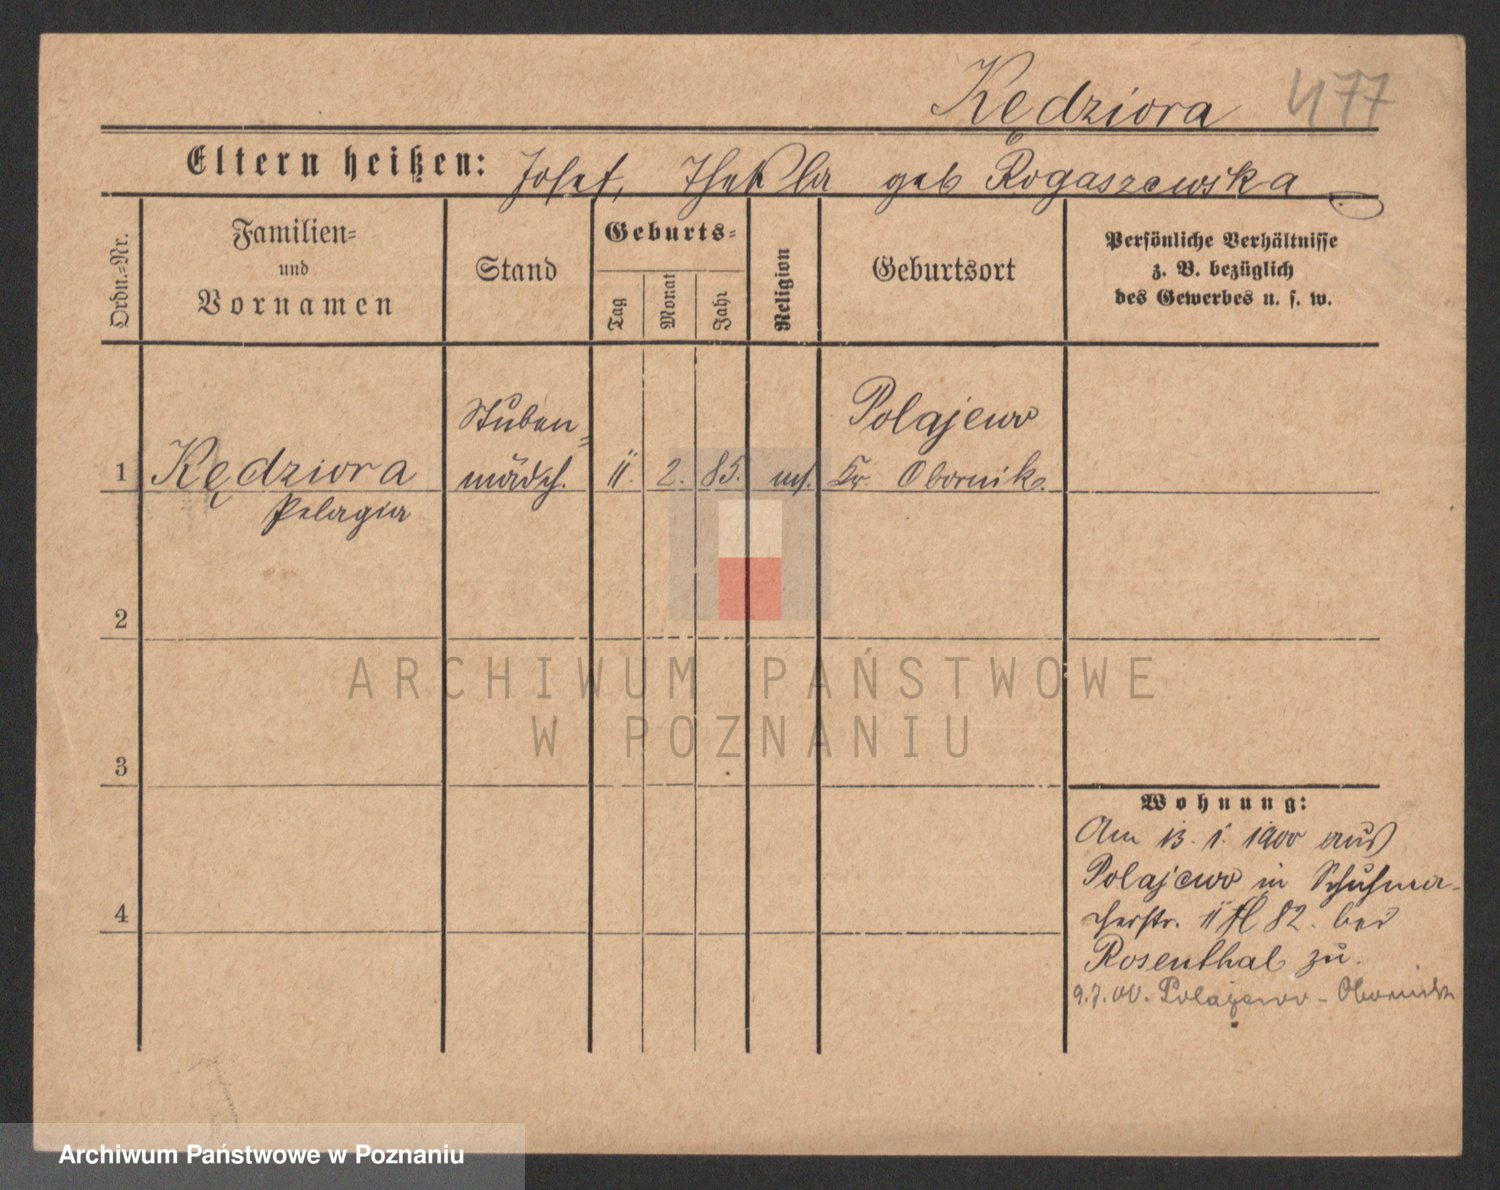 Kędziora 477
Eltern heißen: Josef, Thekla geb Rogaszewska
Ordn.-Nr.
Familien-
und
Vornamen
Stand
Geburts-
Tag
Monat
Jahr
Religion
Geburtsort
Persönliche Verhältnisse
z. B. bezüglich
des Gewerbes u. s. w.
Stuben-
Polajewo
1 Kędziora mädch. 11. 2. 85. Kr. Obornik.
Pelagia
2
ARCHIWUM PAŃSTWOWE
W POZNANIU
3
Wohnung:
Am 13. 1. 1900 aus
Polajewo in Schuhma-
cherstr. 11 82. bei
Rosenthal zu.
4
9.7.00. Polajewo - Obornik
Archiwum Państwowe w Poznaniu